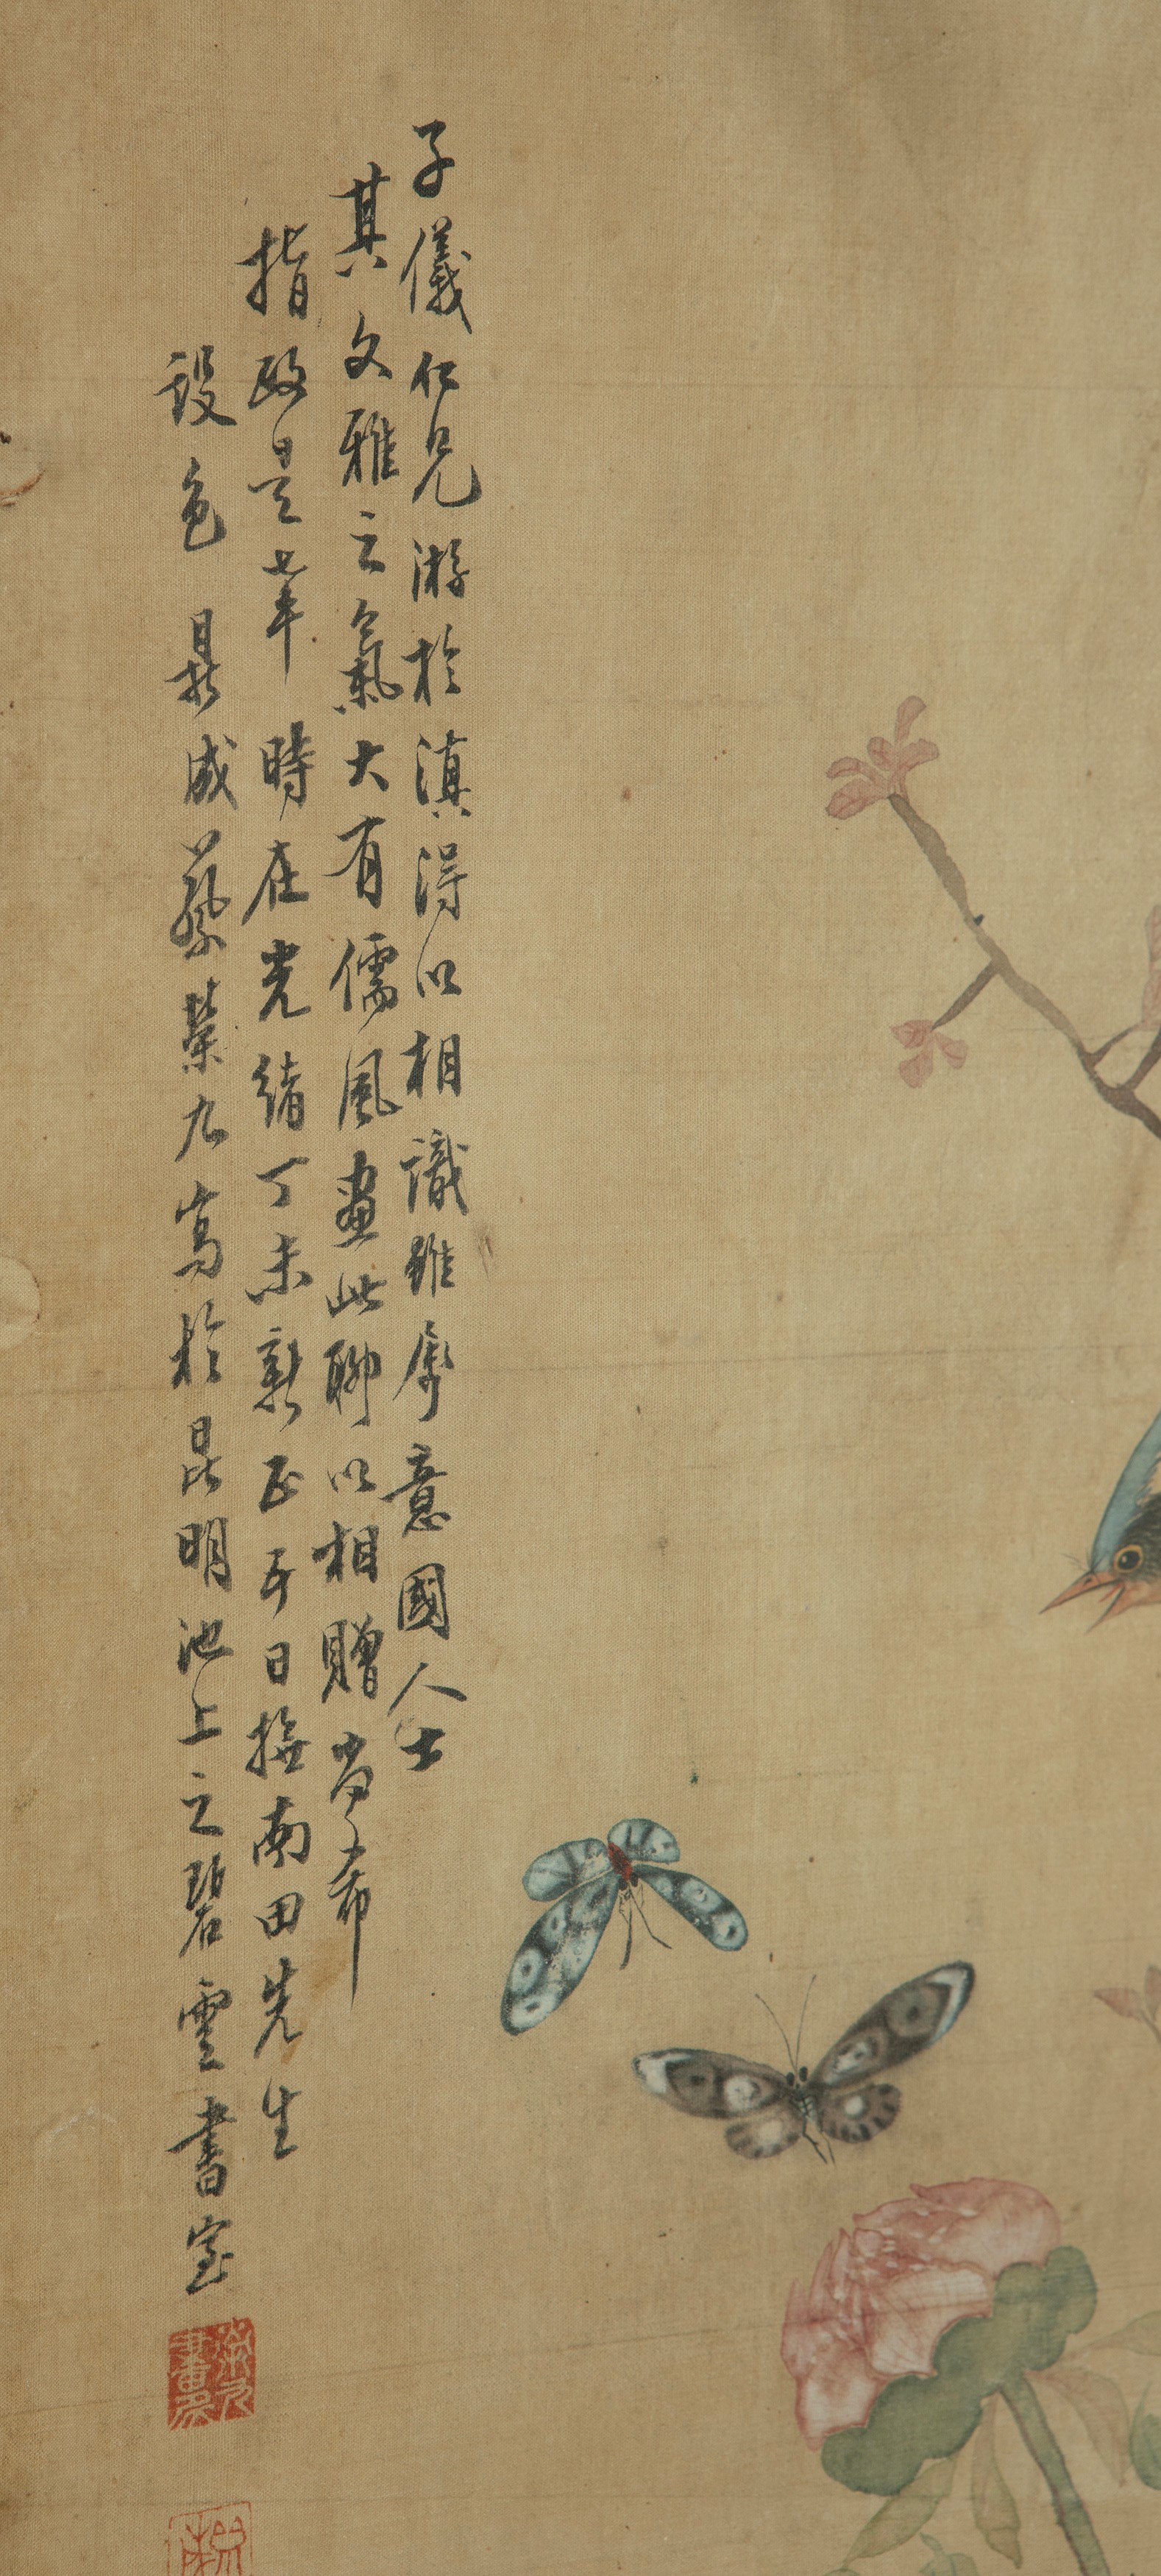 子儀仁兄游於滇得以相識雖屬意國人士
其文雅之氣大有儒風畫此聊以相贈當希
指政是幸時在光緒丁未新正午日撫南田先生
設色 昆成蔡榮九寫於昆明池上之碧雲書室